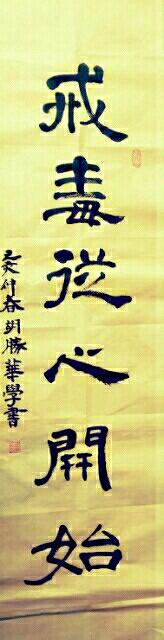 戒毒從心開始
癸巳春胡勝華學書